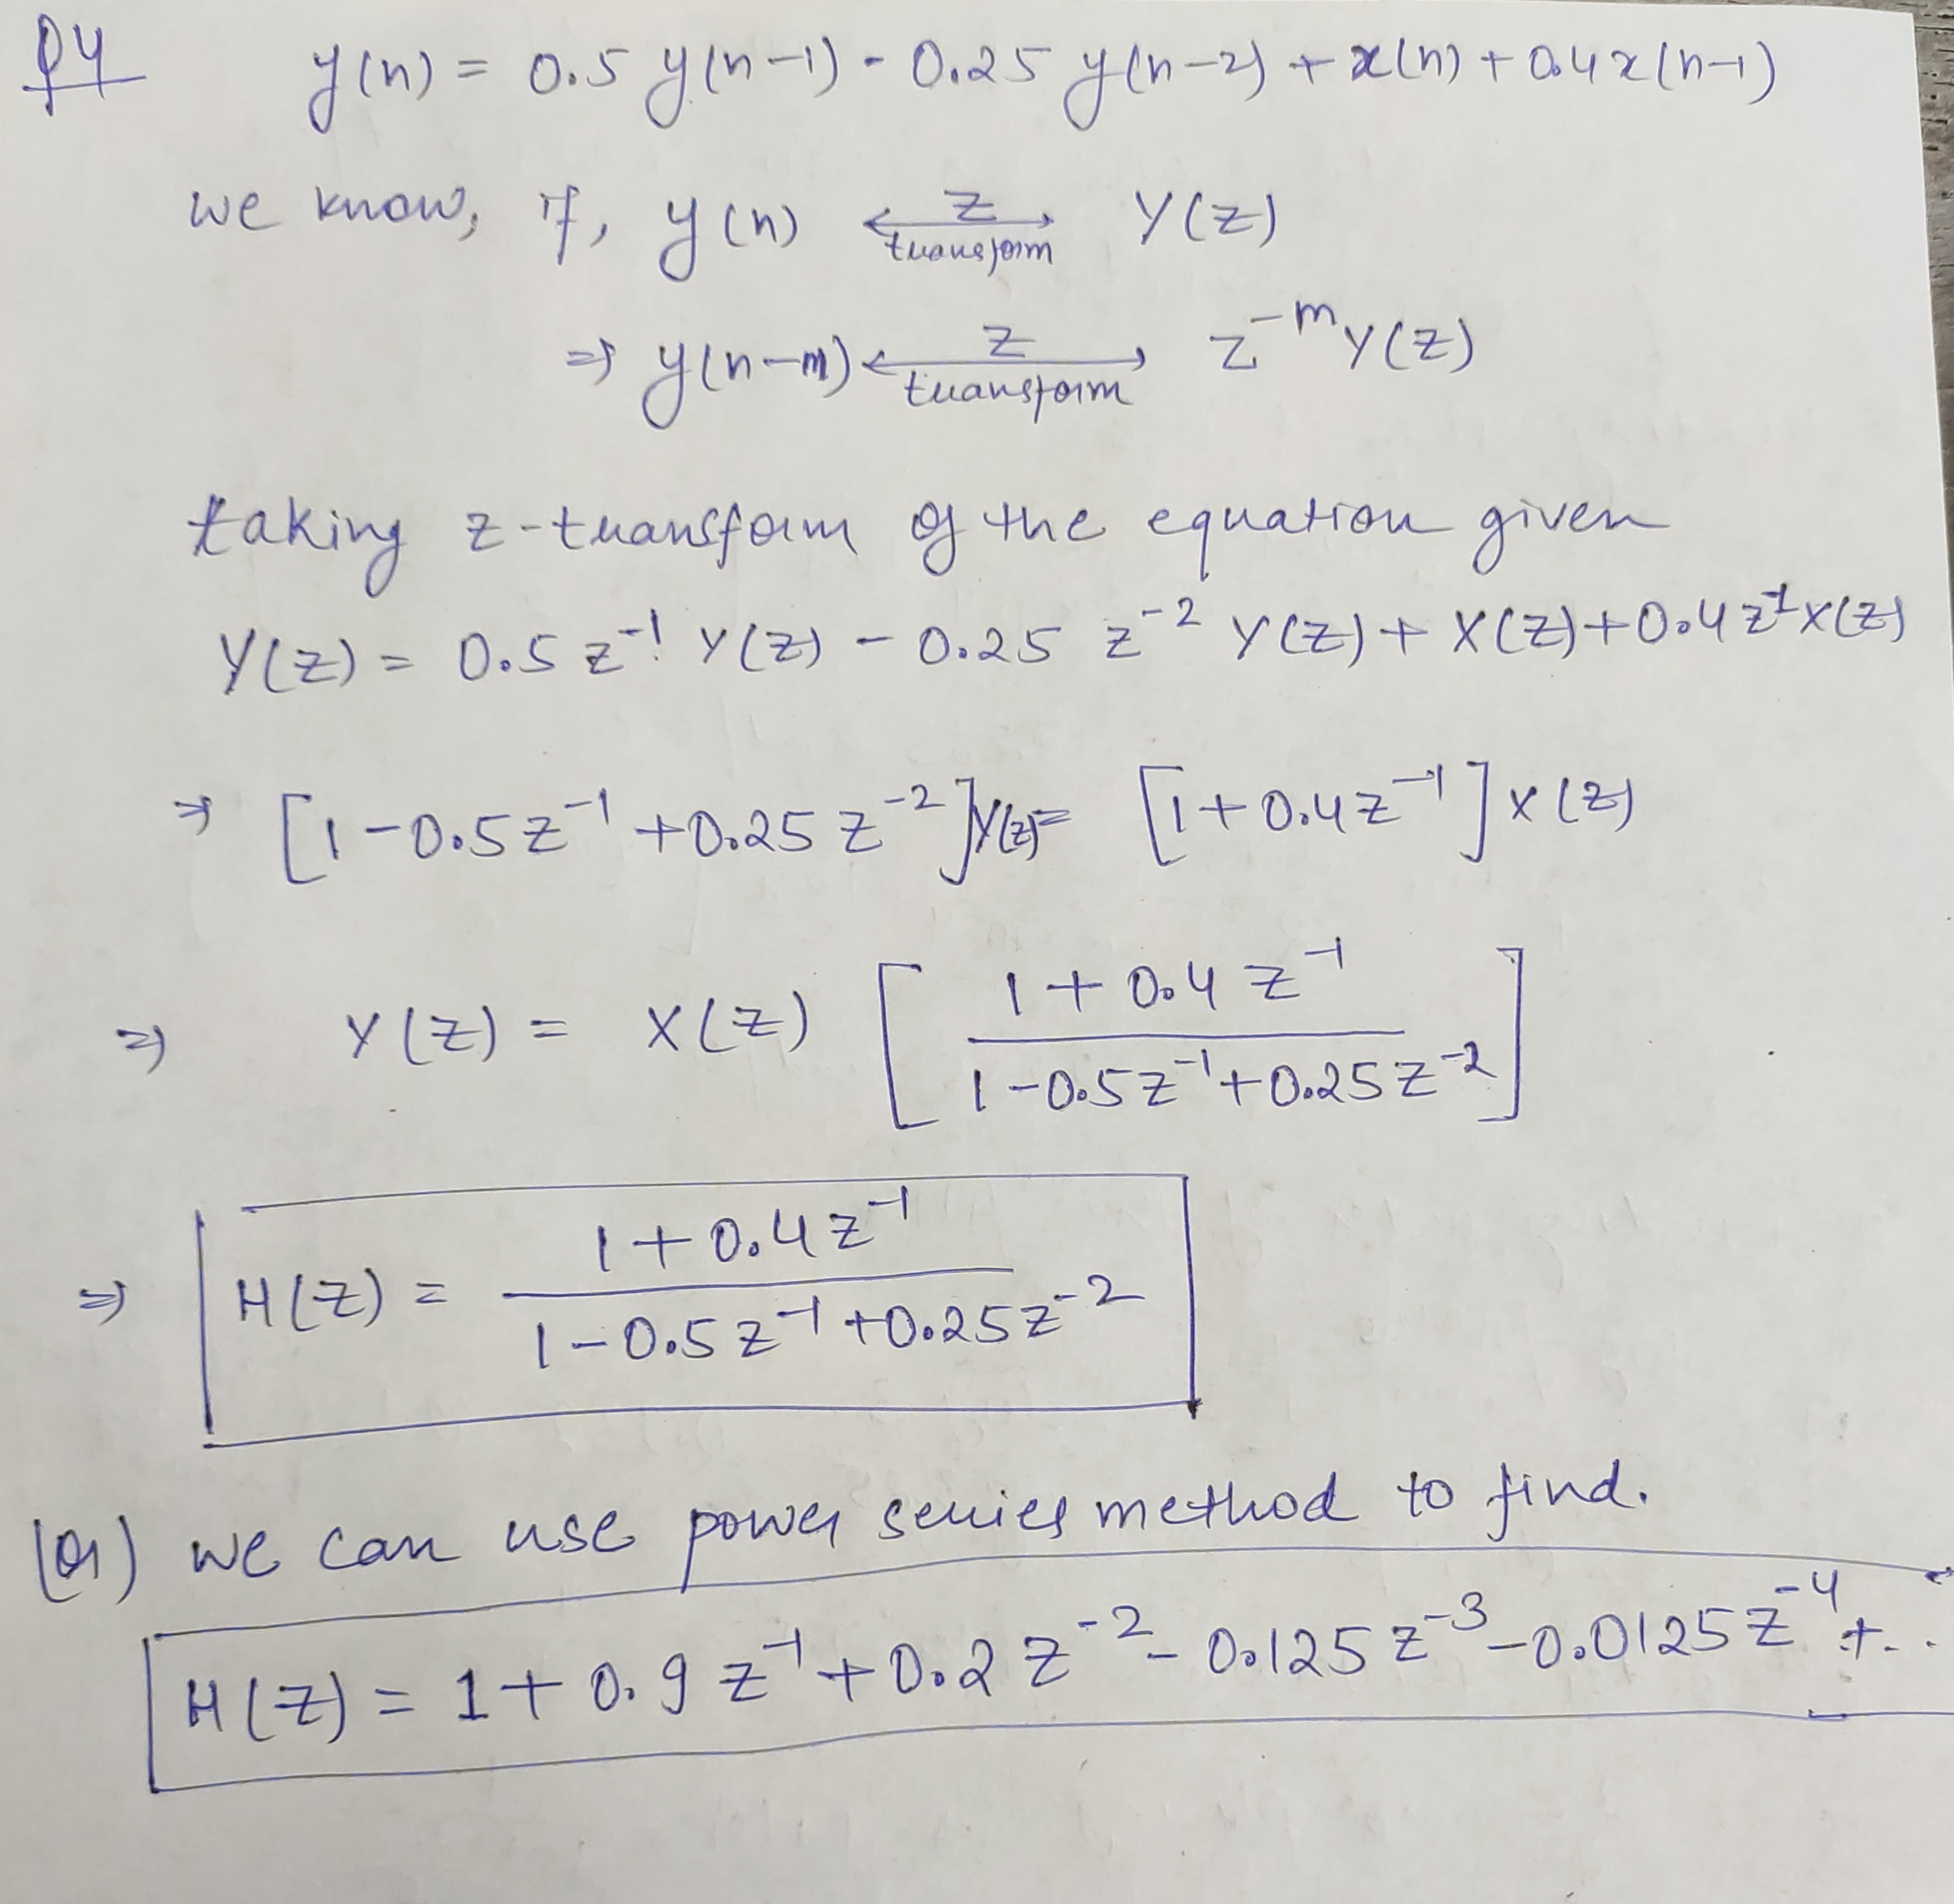 Q4 y(n) = 0.5 y(n-1) - 0.25 y(n-2) + x(n) + 0.4x(n-1)
we know, if, y(n) ⟷ Y(z)
z
transform
⇒ y(n-m) ⟷ z^{-m} Y(z)
z
transform
taking z-transform of the equation given
Y(z) = 0.5 z^{-1} Y(z) - 0.25 z^{-2} Y(z) + X(z) + 0.4 z^{-1} X(z)
⇒ [1 - 0.5z^{-1} + 0.25 z^{-2}] Y(z) = [1 + 0.4z^{-1}] X(z)
⇒ Y(z) = X(z) [ (1 + 0.4 z^{-1}) / (1 - 0.5z^{-1} + 0.25z^{-2}) ]
⇒ H(z) = (1 + 0.4z^{-1}) / (1 - 0.5z^{-1} + 0.25z^{-2})
(or) we can use power series method to find.
H(z) = 1 + 0.9 z^{-1} + 0.2 z^{-2} - 0.125 z^{-3} - 0.0125 z^{-4} + ...